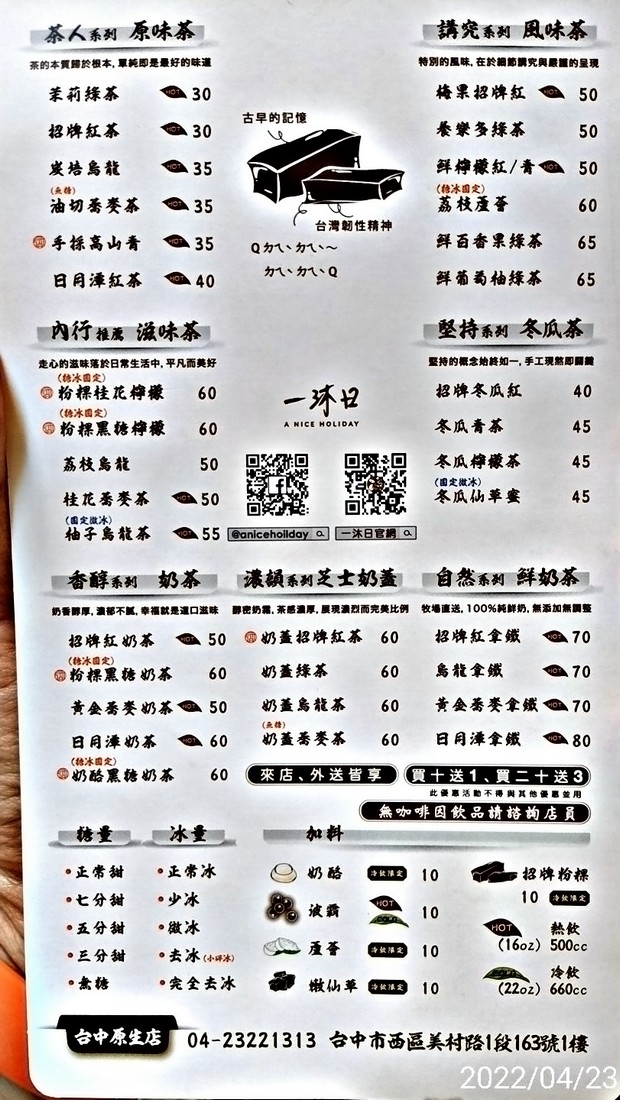 茶人系列 原味茶
茶的本質歸於根本,單純即是最好的味道
茉莉綠茶 HOT 30
招牌紅茶 HOT 30
炭焙烏龍 HOT 35
(無糖)
油切蕎麥茶 HOT 35
手採高山青 HOT 35
日月潭紅茶 HOT 40
古早的記憶
台灣韌性精神
Qㄉㄟˋㄉㄟˋ~
ㄉㄟˋㄉㄟˋQ
講究系列 風味茶
特別的風味,在於細節講究與嚴謹的呈現
梅果招牌紅 HOT 50
養樂多綠茶 50
鮮檸檬紅/青 HOT 50
(糖冰固定)
荔枝蘆薈 60
鮮百香果綠茶 65
鮮葡萄柚綠茶 65
內行推薦 滋味茶
走心的滋味落於日常生活中,平凡而美好
(糖冰固定)
粉粿桂花檸檬 60
(糖冰固定)
粉粿黑糖檸檬 60
荔枝烏龍 50
桂花蕎麥茶 HOT 50
(固定微冰)
柚子烏龍茶 HOT 55
一沐日
A NICE HOLIDAY
@aniceholiday
一沐日官網
堅持系列 冬瓜茶
堅持的概念始終如一,手工現熬即關鍵
招牌冬瓜紅 40
冬瓜青茶 45
冬瓜檸檬茶 45
(固定微冰)
冬瓜仙草蜜 45
香醇系列 奶茶
奶香醇厚,濃郁不膩,幸福就是這口滋味
招牌紅奶茶 HOT 50
(糖冰固定)
粉粿黑糖奶茶 60
黃金蕎麥奶茶 HOT 50
日月潭奶茶 HOT 60
(糖冰固定)
奶酪黑糖奶茶 60
濃韻系列芝士奶蓋
醇密奶霜,茶感濃厚,展現濃烈而完美比例
奶蓋招牌紅茶 60
奶蓋綠茶 60
奶蓋烏龍茶 60
(無糖)
奶蓋蕎麥茶 60
自然系列 鮮奶茶
牧場直送,100%純鮮奶,無添加無調整
招牌紅拿鐵 HOT 70
烏龍拿鐵 HOT 70
黃金蕎麥拿鐵 HOT 70
日月潭拿鐵 HOT 80
來店、外送皆享
買十送1、買二十送3
此優惠活動不得與其他優惠並用
無咖啡因飲品請諮詢店員
糖量
正常甜
七分甜
五分甜
三分甜
無糖
冰量
正常冰
少冰
微冰
去冰(小碎冰)
完全去冰
加料
奶酪 冷飲限定 10
波霸 HOT COLD 10
蘆薈 冷飲限定 10
嫩仙草 冷飲限定 10
招牌粉粿
10 冷飲限定
HOT 熱飲
(16oz) 500cc
冷飲
(22oz) 660cc
台中原生店 04-23221313 台中市西區美村路1段163號1樓
2022/04/23